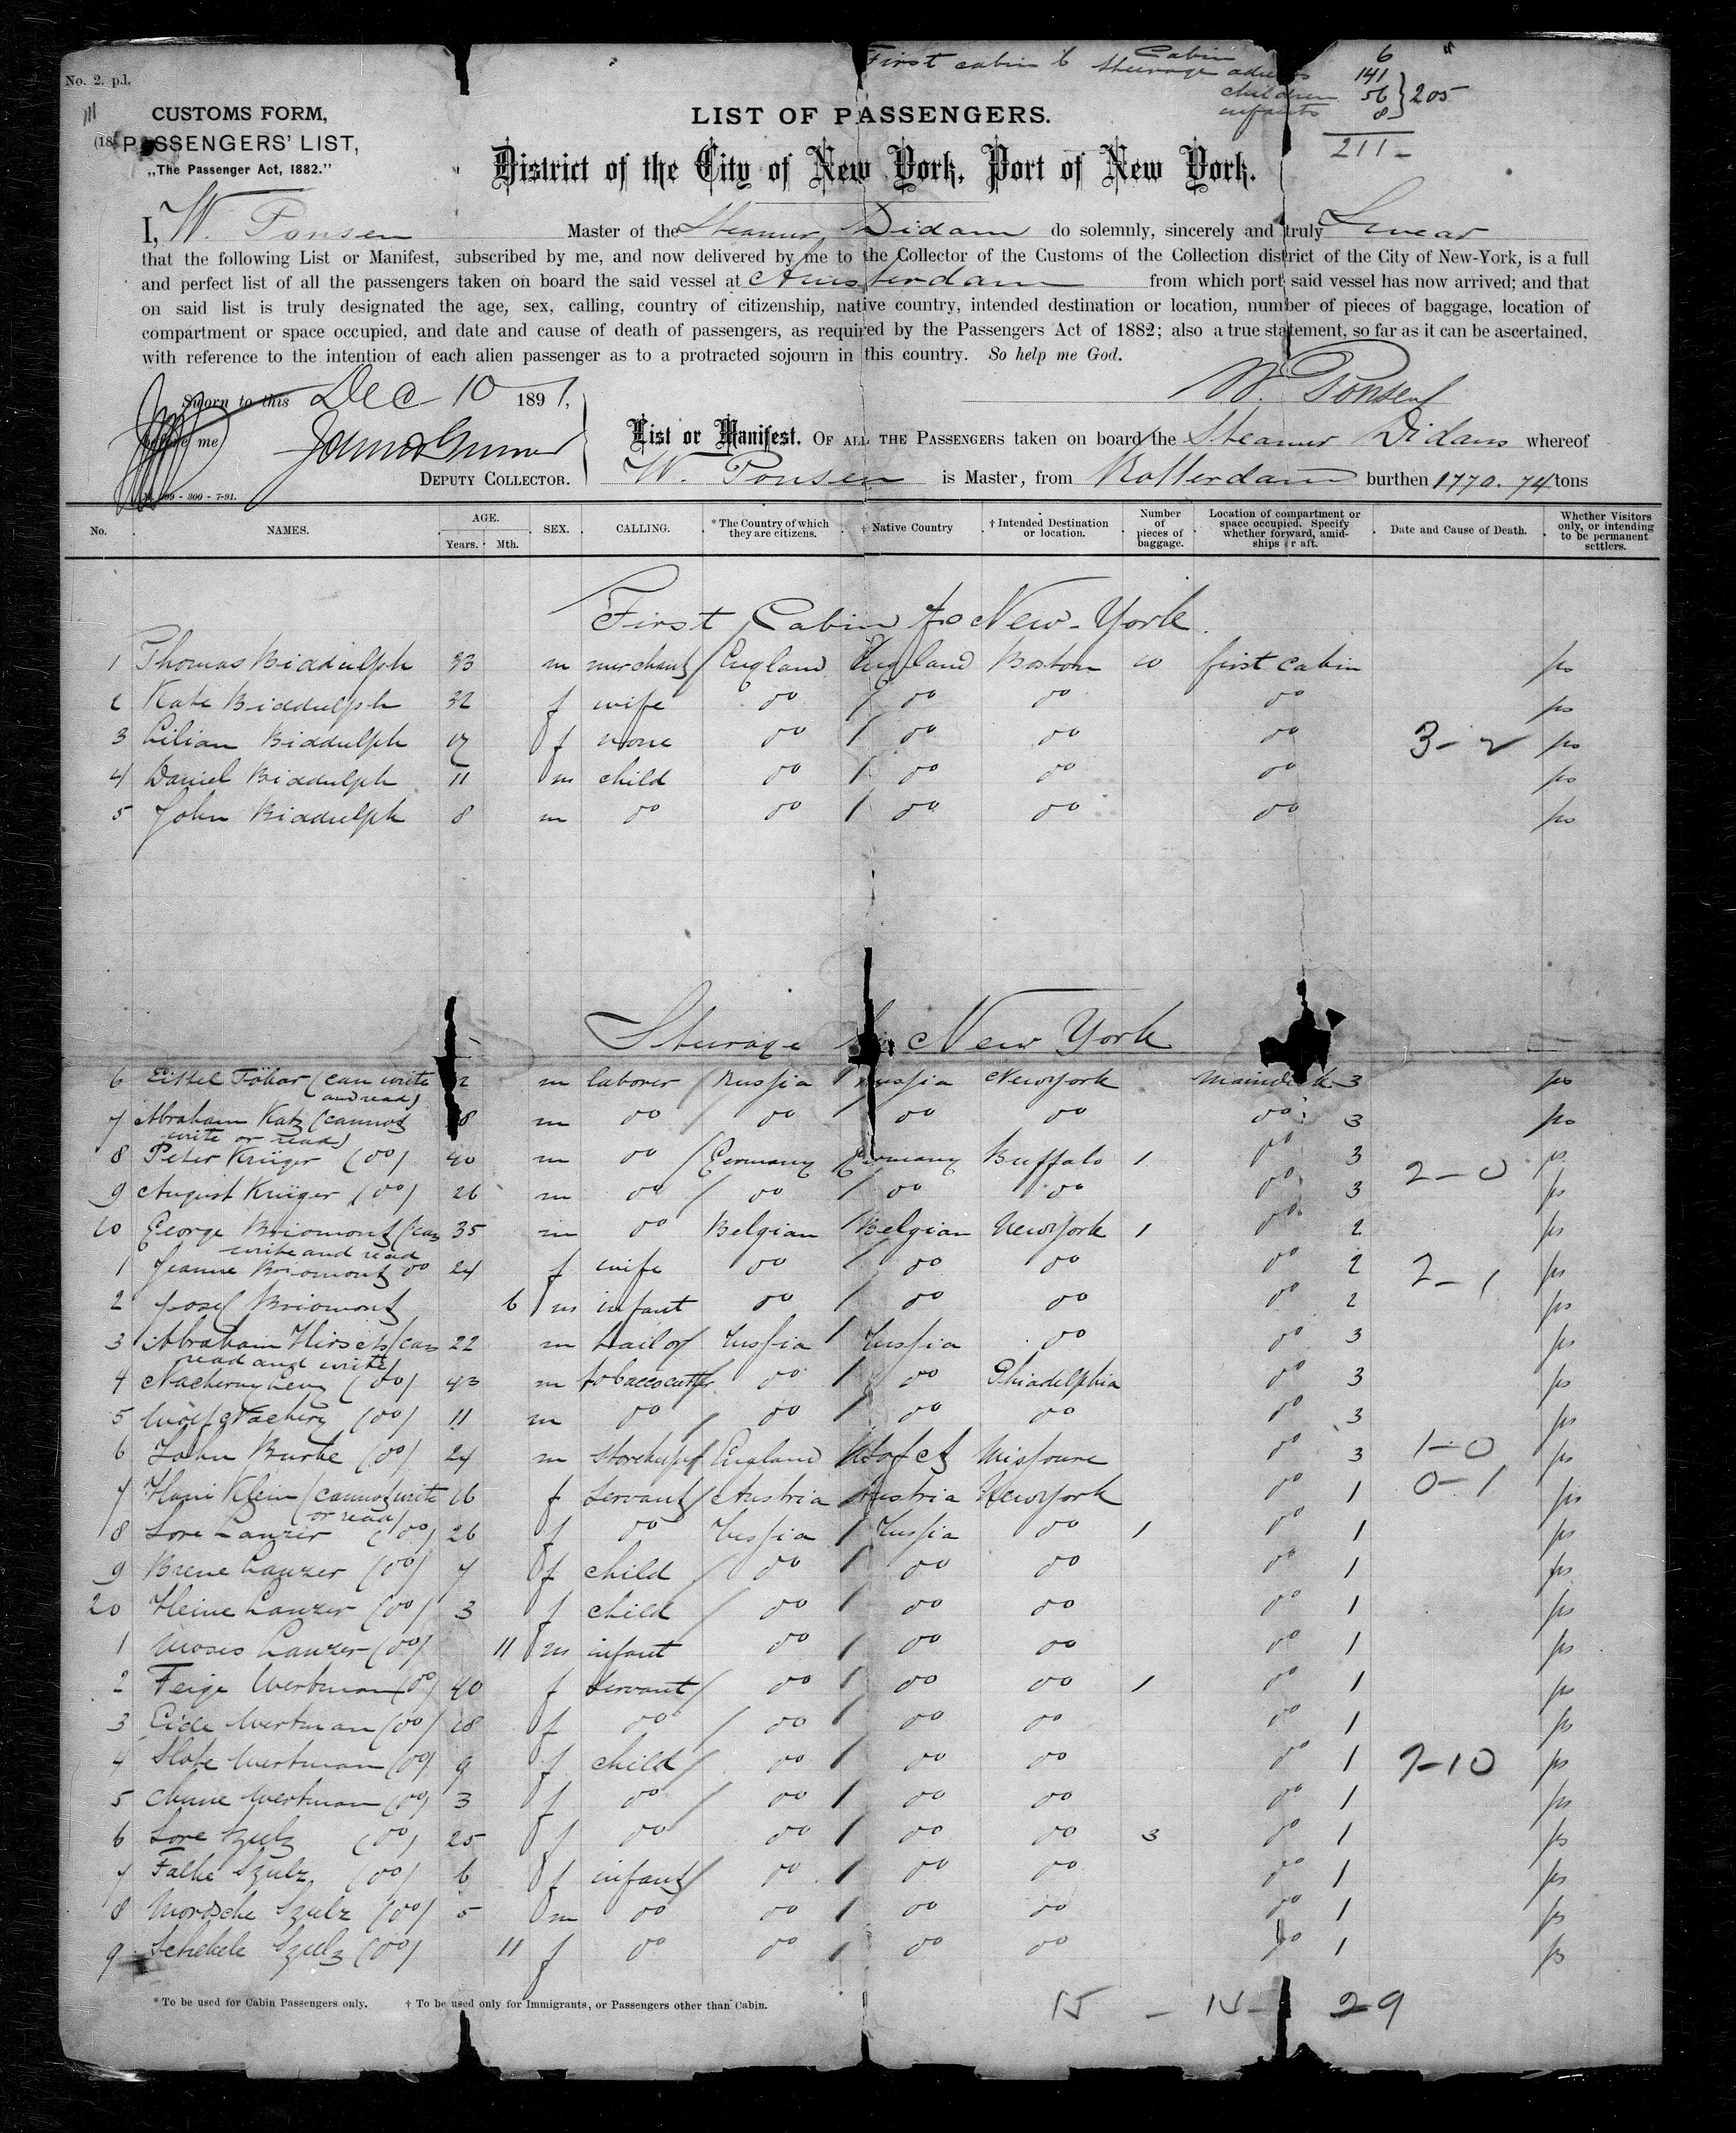 No. 2. p.l.
First cabin 6 Cabin 6 "
steerage adults 141
children 56 } 205
infants 8
211 -
CUSTOMS FORM,
PASSENGERS' LIST,
„The Passenger Act, 1882."
LIST OF PASSENGERS.
District of the City of New York, Port of New York.
I, W. Ponsen Master of the Steamer Didam do solemnly, sincerely and truly Swear
that the following List or Manifest, subscribed by me, and now delivered by me to the Collector of the Customs of the Collection district of the City of New-York, is a full
and perfect list of all the passengers taken on board the said vessel at Amsterdam from which port said vessel has now arrived; and that
on said list is truly designated the age, sex, calling, country of citizenship, native country, intended destination or location, number of pieces of baggage, location of
compartment or space occupied, and date and cause of death of passengers, as required by the Passengers Act of 1882; also a true statement, so far as it can be ascertained,
with reference to the intention of each alien passenger as to a protracted sojourn in this country. So help me God.
W. Ponsen
Sworn to this Dec 10 1891,
before me
DEPUTY COLLECTOR.
List or Manifest, OF ALL THE PASSENGERS taken on board the Steamer Didam whereof
W. Ponsen is Master, from Rotterdam burthen 1770.74 tons
No. NAMES. AGE. Years. Mth. SEX. CALLING. * The Country of which they are citizens. † Native Country † Intended Destination or location. Number of pieces of baggage. Location of compartment or space occupied. Specify whether forward, amidships or aft. Date and Cause of Death. Whether Visitors only, or intending to be permanent settlers.
First Cabin to New-York.
1 Thomas Biddulph 33 m merchant England England Boston 10 first cabin ps
2 Kate Biddulph 32 f wife do do do do ps
3 Lilian Biddulph 17 f none do do do do 3-2 ps
4 Daniel Biddulph 11 m child do do do do ps
5 John Biddulph 8 m do do do do do ps
Steerage to New York
6 Eissel Töbar (can write and read) 2 m laborer Russia Russia New york Maindeck 3 ps
7 Abraham Katz (cannot write or read) 8 m do do do do do 3 ps
8 Peter Krüger (do) 40 m do Germany Germany Buffalo 1 do 3 ps
9 August Krüger (do) 26 m do do do do do 3 2-0 ps
10 George Briomont (can write and read 35 m do Belgian Belgian New york 1 do 2 ps
1 Jeanne Briomont do 24 f wife do do do do 2 2-1 ps
2 Josef Briomont 6 m infant do do do do 2 ps
3 Abraham Hirsch (can read and write) 22 m tailor Russia Russia do do 3 ps
4 Nachemy Levy (do) 43 m tobaccocutter do do Phiadelphia do 3 ps
5 Wolf Nachemy (do) 11 m do do do do do 3 ps
6 John Burke (do) 24 m storekeeper England Missoure do 3 1-0 ps
7 Hani Klein (cannot write or read) 16 f Servant Austria Austria New york do 1 0-1 ps
8 Lore Lanzer (do) 26 f do Russia Russia do 1 do 1 ps
9 Brene Lanzer (do) 7 f child do do do do 1 ps
20 Heine Lanzer (do) 3 f child do do do do 1 ps
1 Moses Lanzer (do) 11 m infant do do do do 1 ps
2 Feige Wertman (do) 40 f Servant do do do 1 do 1 ps
3 Eide Wertman (do) 18 f do do do do do 1 ps
4 Slote Wertman (do) 9 f child do do do do 1 2-10 ps
5 Chune Wertman (do) 3 f do do do do do 1 ps
6 Lore Szulz (do) 25 f do do do do 3 do 1 ps
7 Falke Szulz (do) 6 f infant do do do do 1 ps
8 Mordsche Szulz (do) 5 m do do do do do 1 ps
9 Schekele Szulz (do) 11 f do do do do do 1 ps
* To be used for Cabin Passengers only. † To be used only for Immigrants, or Passengers other than Cabin.
15 - 14 - 29